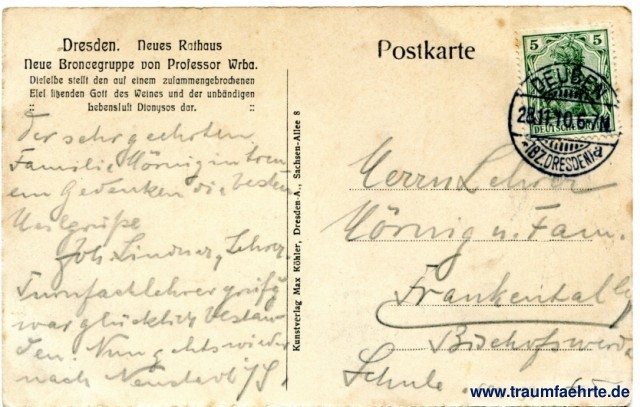 Dresden. Neues Rathaus
Neue Broncegruppe von Professor Wrba.
Dieselbe stellt den auf einem zusammengebrochenen
Esel sitzenden Gott des Weines und der unbändigen
:: Lebenslust Dionysos dar. ::
Der sehr geehrten
Familie Hörnig in treu
em Gedenken die besten
Heilgrüße
Joh. Lindner, Lehrer.
Turnfachlehrerprüfg
war glücklich bestan
den. Nun gehts wieder
nach Neustadt
Kunstverlag Max Köhler, Dresden-A., Sachsen-Allee 8
Postkarte
5 5
DEUTSCHES REICH
DEUBEN
28.11.10. 6-7N
(BZ. DRESDEN) a
Herrn Lehrer
Hörnig u. Fam.
Frankental
Bischofswerda
Schule
www.traumfaehrte.de